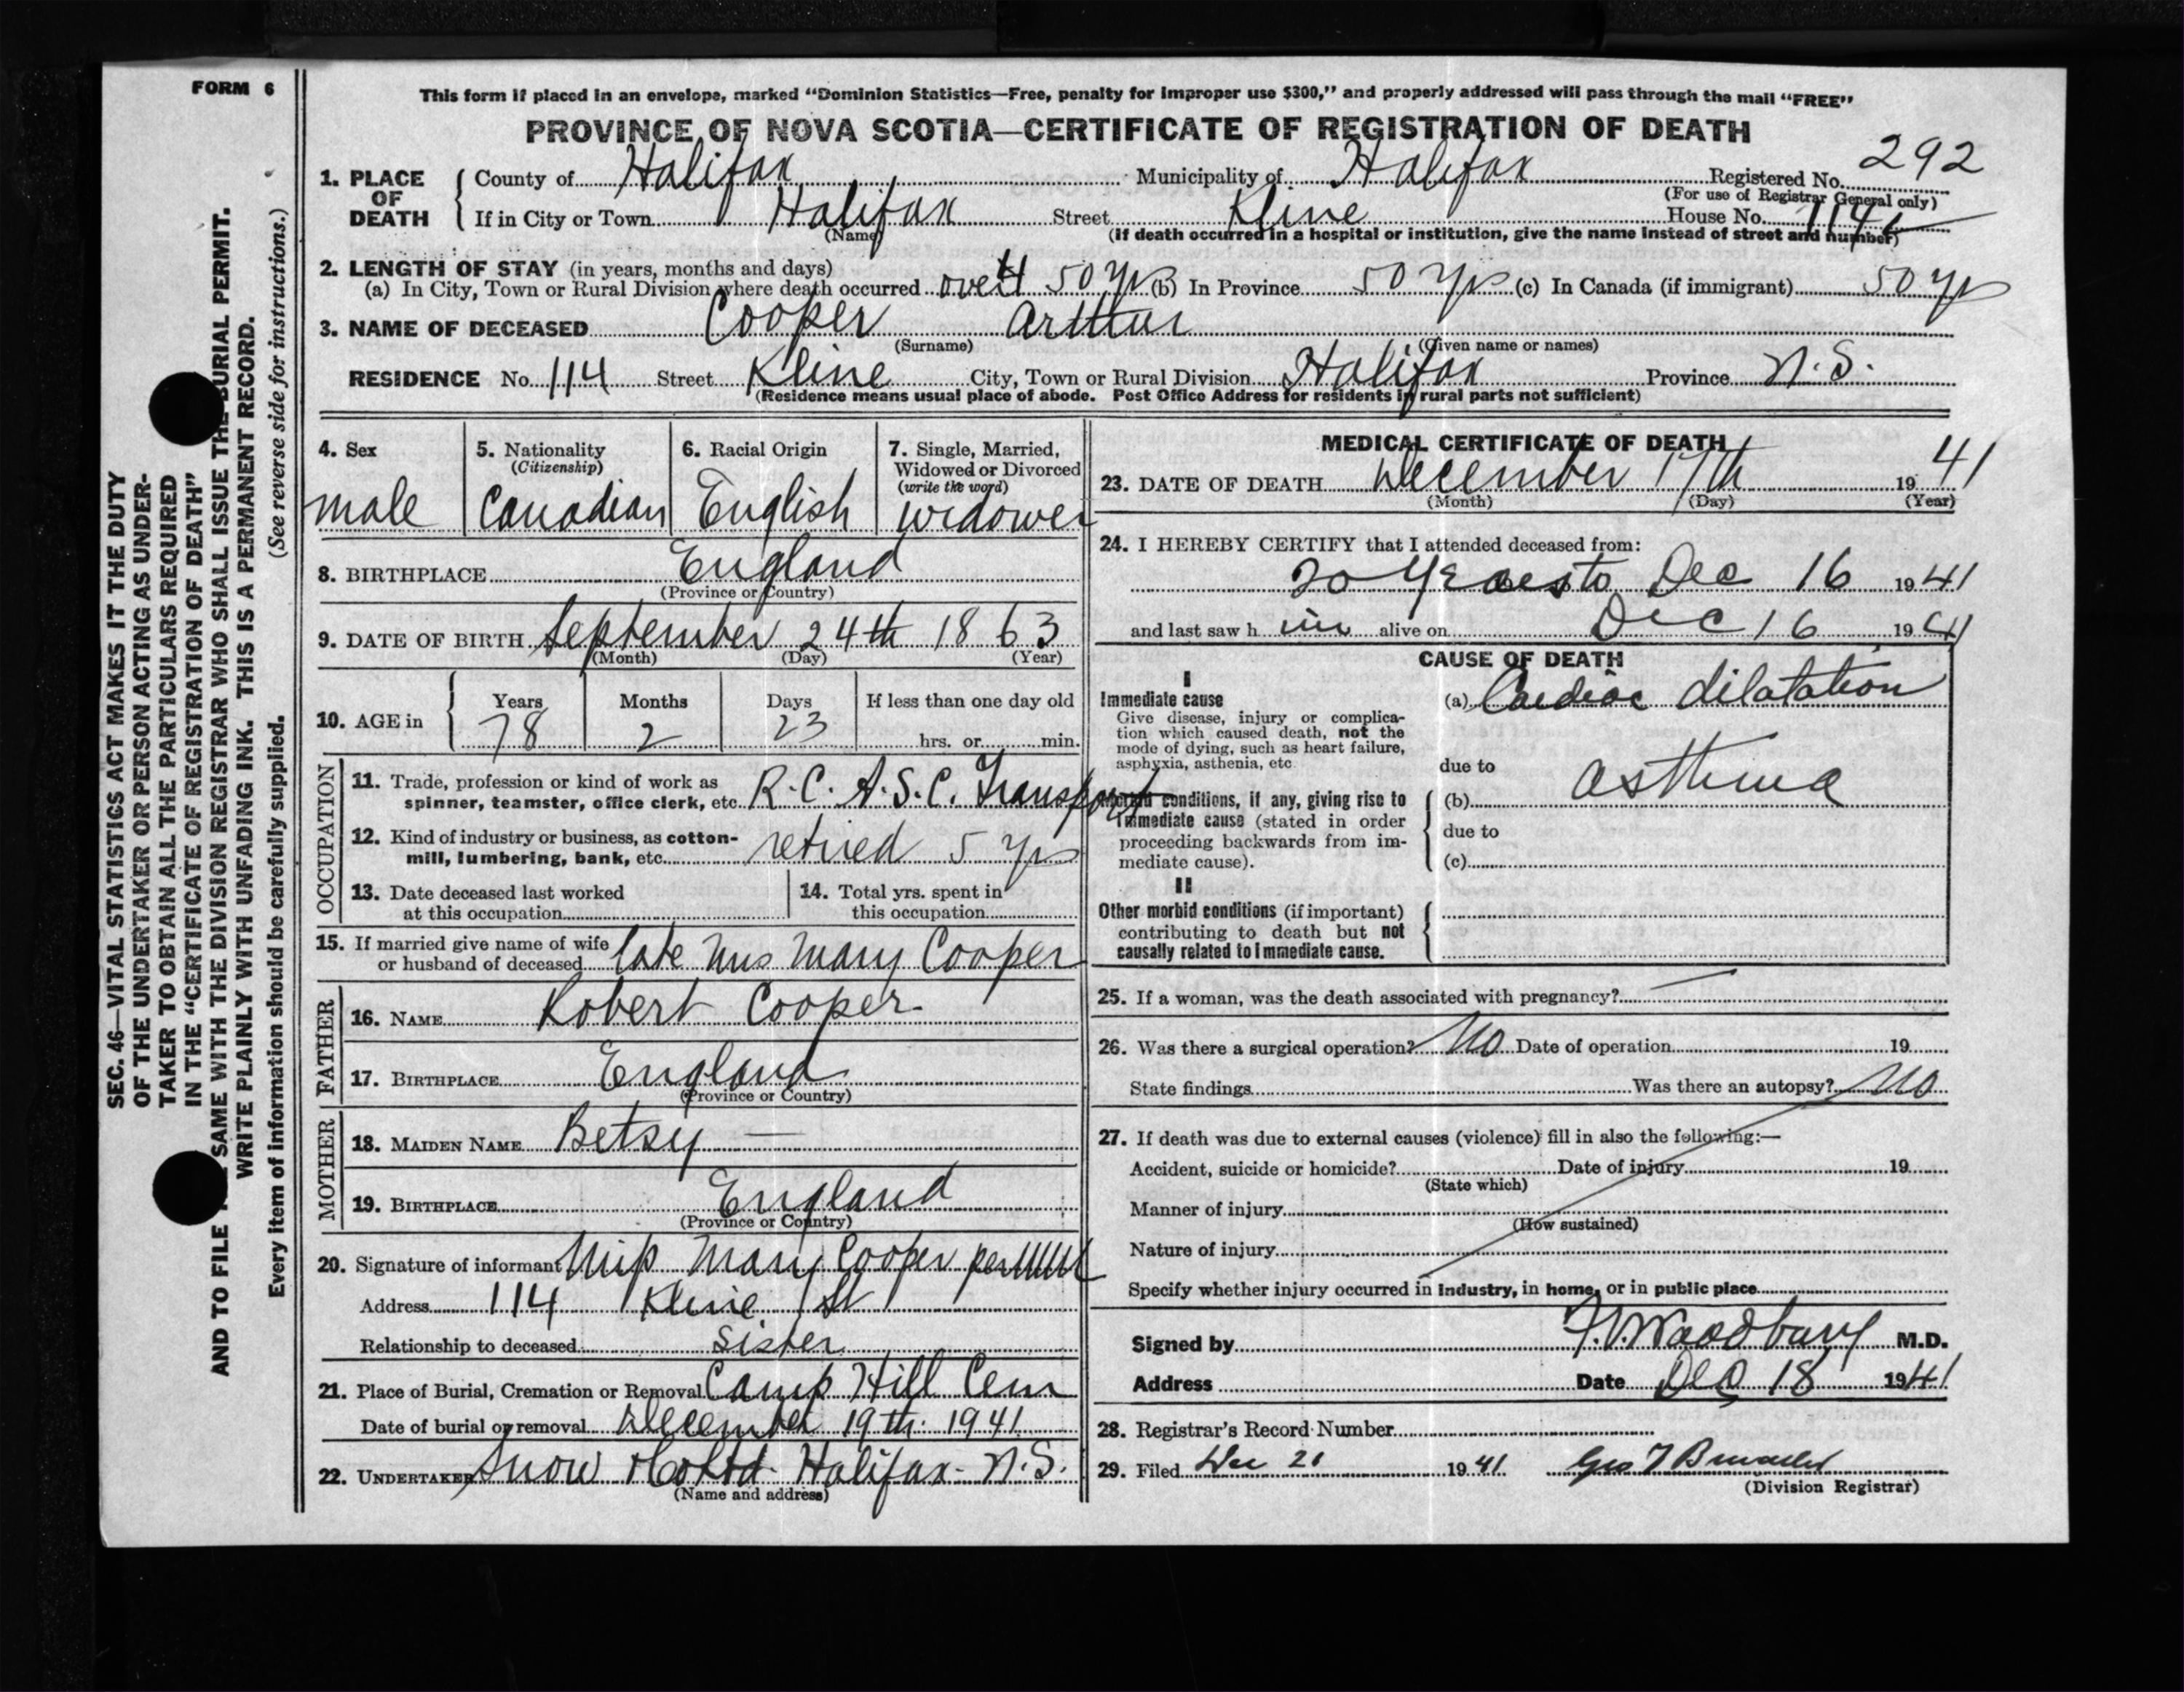 FORM 6
This form if placed in an envelope, marked "Dominion Statistics—Free, penalty for improper use $300," and properly addressed will pass through the mail "FREE"
PROVINCE OF NOVA SCOTIA—CERTIFICATE OF REGISTRATION OF DEATH
1. PLACE OF DEATH
County of Halifax Municipality of Halifax Registered No. 292
(For use of Registrar General only)
If in City or Town Halifax Street Kline House No. 114
(Name) (If death occurred in a hospital or institution, give the name instead of street and number)
2. LENGTH OF STAY (in years, months and days)
(a) In City, Town or Rural Division where death occurred over 50 yrs (b) In Province 50 yrs (c) In Canada (if immigrant) 50 yrs
3. NAME OF DECEASED Cooper Arthur
(Surname) (Given name or names)
RESIDENCE No. 114 Street Kline City, Town or Rural Division Halifax Province N.S.
(Residence means usual place of abode. Post Office Address for residents in rural parts not sufficient)
4. Sex 5. Nationality 6. Racial Origin 7. Single, Married,
(Citizenship) Widowed or Divorced
(write the word)
male Canadian English widower
8. BIRTHPLACE England
(Province or Country)
9. DATE OF BIRTH September 24th 1863
(Month) (Day) (Year)
10. AGE in Years Months Days If less than one day old
78 2 23 hrs. or min.
OCCUPATION
11. Trade, profession or kind of work as
spinner, teamster, office clerk, etc. R.C.A.S.C. Transport
12. Kind of industry or business, as cotton-
mill, lumbering, bank, etc. retired 5 yrs
13. Date deceased last worked 14. Total yrs. spent in
at this occupation this occupation
15. If married give name of wife
or husband of deceased late Mrs Mary Cooper
FATHER
16. NAME Robert Cooper
17. BIRTHPLACE England
(Province or Country)
MOTHER
18. MAIDEN NAME Betsy —
19. BIRTHPLACE England
(Province or Country)
20. Signature of informant Miss Mary Cooper per
Address 114 Kline St
Relationship to deceased Sister
21. Place of Burial, Cremation or Removal Camp Hill Cem
Date of burial or removal December 19th 1941
22. UNDERTAKER Snow & Co Ltd Halifax - N.S.
(Name and address)
MEDICAL CERTIFICATE OF DEATH
23. DATE OF DEATH December 17th 1941
(Month) (Day) (Year)
24. I HEREBY CERTIFY that I attended deceased from:
20 years to Dec 16 1941
and last saw h im alive on Dec 16 1941
CAUSE OF DEATH
I
Immediate cause (a) Cardiac dilatation
Give disease, injury or complica-
tion which caused death, not the
mode of dying, such as heart failure,
asphyxia, asthenia, etc.
due to
Morbid conditions, if any, giving rise to (b) asthma
immediate cause (stated in order due to
proceeding backwards from im-
mediate cause). (c)
II
Other morbid conditions (if important)
contributing to death but not
causally related to immediate cause.
25. If a woman, was the death associated with pregnancy? —
26. Was there a surgical operation? No Date of operation 19
State findings Was there an autopsy? No
27. If death was due to external causes (violence) fill in also the following:—
Accident, suicide or homicide? Date of injury 19
(State which)
Manner of injury
(How sustained)
Nature of injury
Specify whether injury occurred in industry, in home, or in public place
Signed by F. V. Woodbury M.D.
Address Date Dec 18 1941
28. Registrar's Record Number
29. Filed Dec 21 1941 Geo
(Division Registrar)
SEC. 46—VITAL STATISTICS ACT MAKES IT THE DUTY
OF THE UNDERTAKER OR PERSON ACTING AS UNDER-
TAKER TO OBTAIN ALL THE PARTICULARS REQUIRED
IN THE "CERTIFICATE OF REGISTRATION OF DEATH"
AND TO FILE SAME WITH THE DIVISION REGISTRAR WHO SHALL ISSUE THE BURIAL PERMIT.
WRITE PLAINLY WITH UNFADING INK. THIS IS A PERMANENT RECORD.
Every item of information should be carefully supplied. (See reverse side for instructions.)